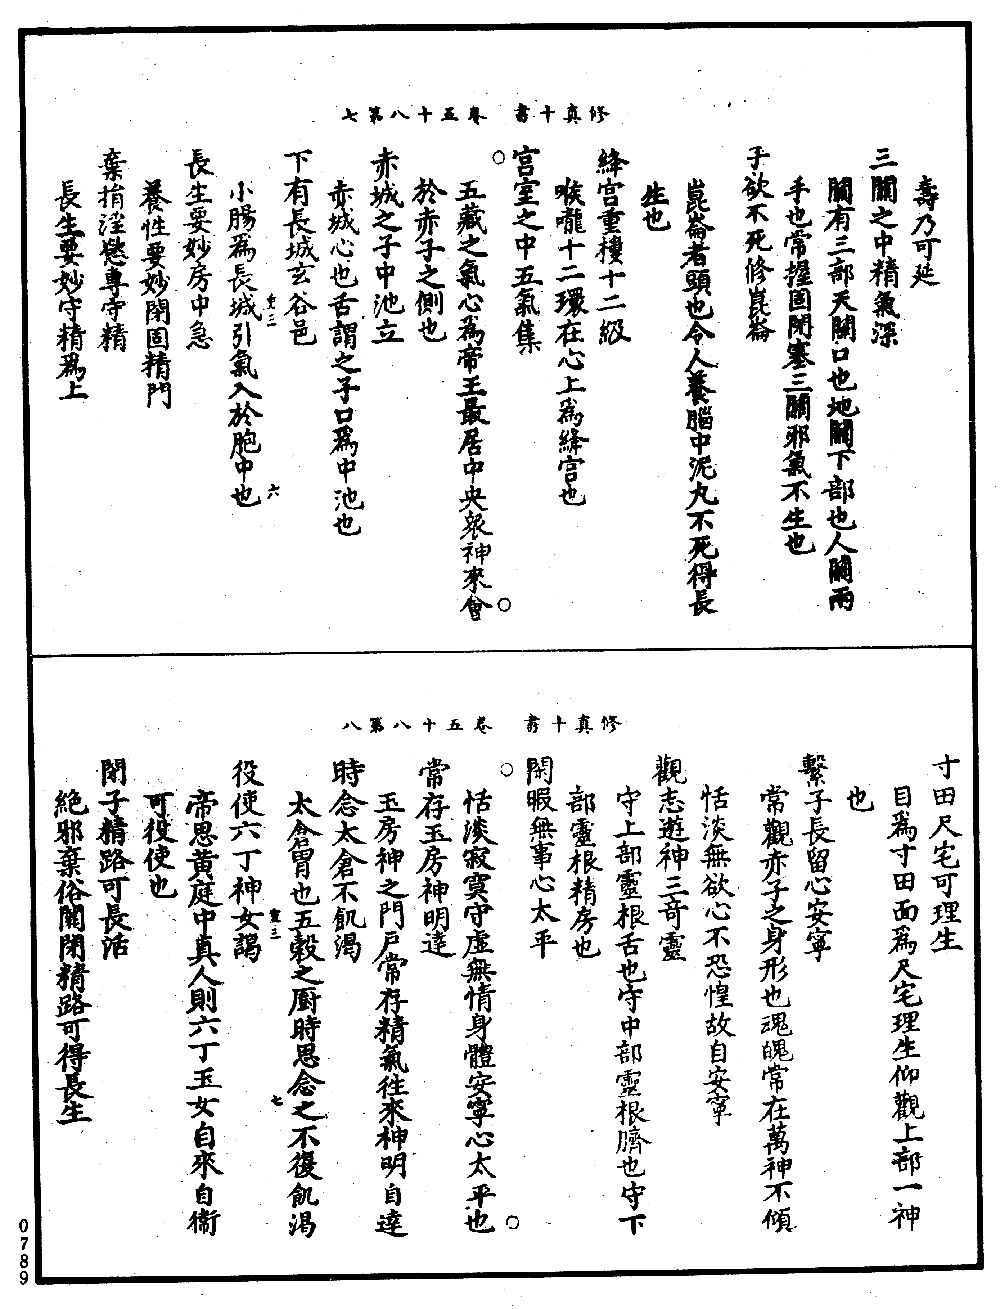 修真十書　卷五十八第七
壽乃可延
三關之中精氣深
關有三部天關口也地關下部也人關兩
手也常握固閉塞三關邪氣不生也
子欲不死修崑崙
崑崙者頭也令人養腦中泥丸不死得長
生也
絳宮重樓十二級
喉嚨十二環在心上爲絳宮也
宮室之中五氣集
五藏之氣心為帝王最居中央衆神來會
於赤子之側也
赤城之子中池立
赤城心也舌謂之子口爲中池也
下有長城玄谷邑
小腸爲長城引氣入於胞中也
重三　六
長生要妙房中急
養性要妙閉固精門
棄捐淫慾專守精
長生要妙守精爲上
修真十書　卷五十八第八
寸田尺宅可理生
目爲寸田面爲尺宅理生仰觀上部一神
也
繫子長留心安寧
常觀赤子之身形也魂魄常在萬神不傾
恬淡無欲心不恐惶故自安寧
觀志遊神三奇靈
守上部靈根舌也守中部靈根臍也守下
部靈根精房也
閑暇無事心太平
恬淡寂寞守虛無情身體安寧心太平也
常存玉房神明達
玉房神之門戶常存精氣往來神明自達
時念太倉不飢渴
太倉胃也五穀之廚時思念之不復飢渴
重三　七
役使六丁神女謁
帝思黃庭中真人則六丁玉女自來自衞
可役使也
閉子精路可長活
絕邪棄俗關閉精路可得長生
0789